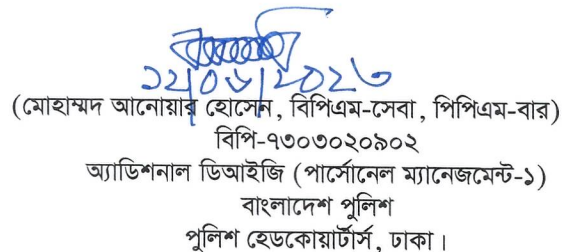 ১২/০৮/২০২৩
(মোহাম্মদ আনোয়ার হোসেন, বিপিএম-সেবা, পিপিএম-বার)
বিপি-৭৩০৩০২০৯০২
অ্যাডিশনাল ডিআইজি (পার্সোনেল ম্যানেজমেন্ট-১)
বাংলাদেশ পুলিশ
পুলিশ হেডকোয়ার্টার্স, ঢাকা।